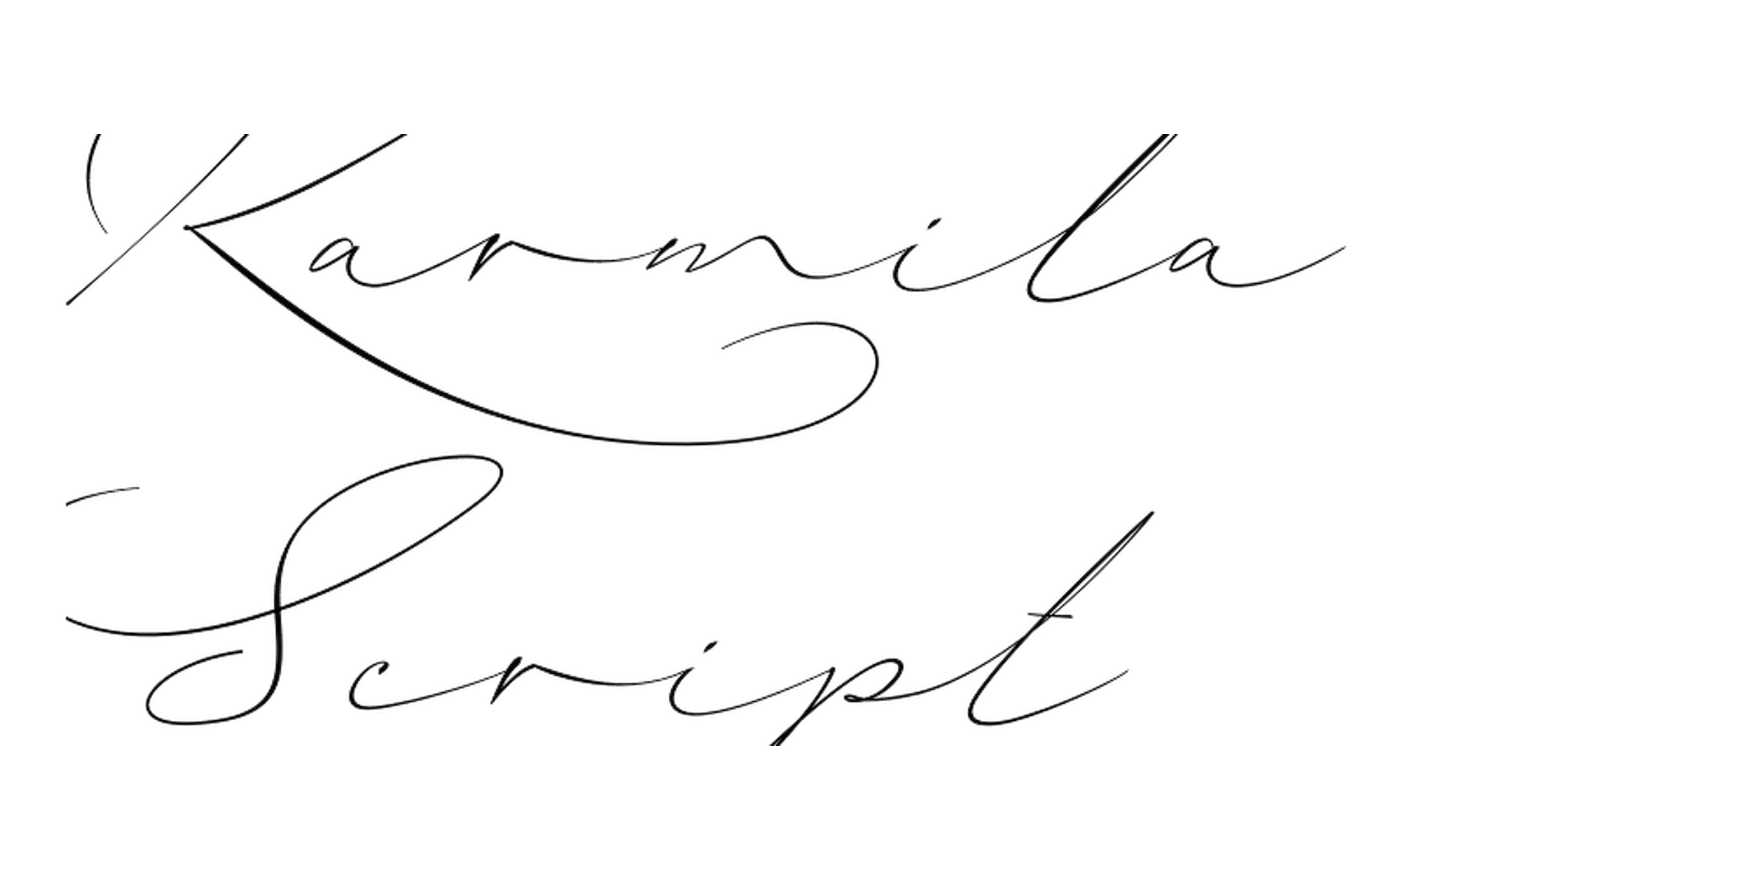 Karmila
Script